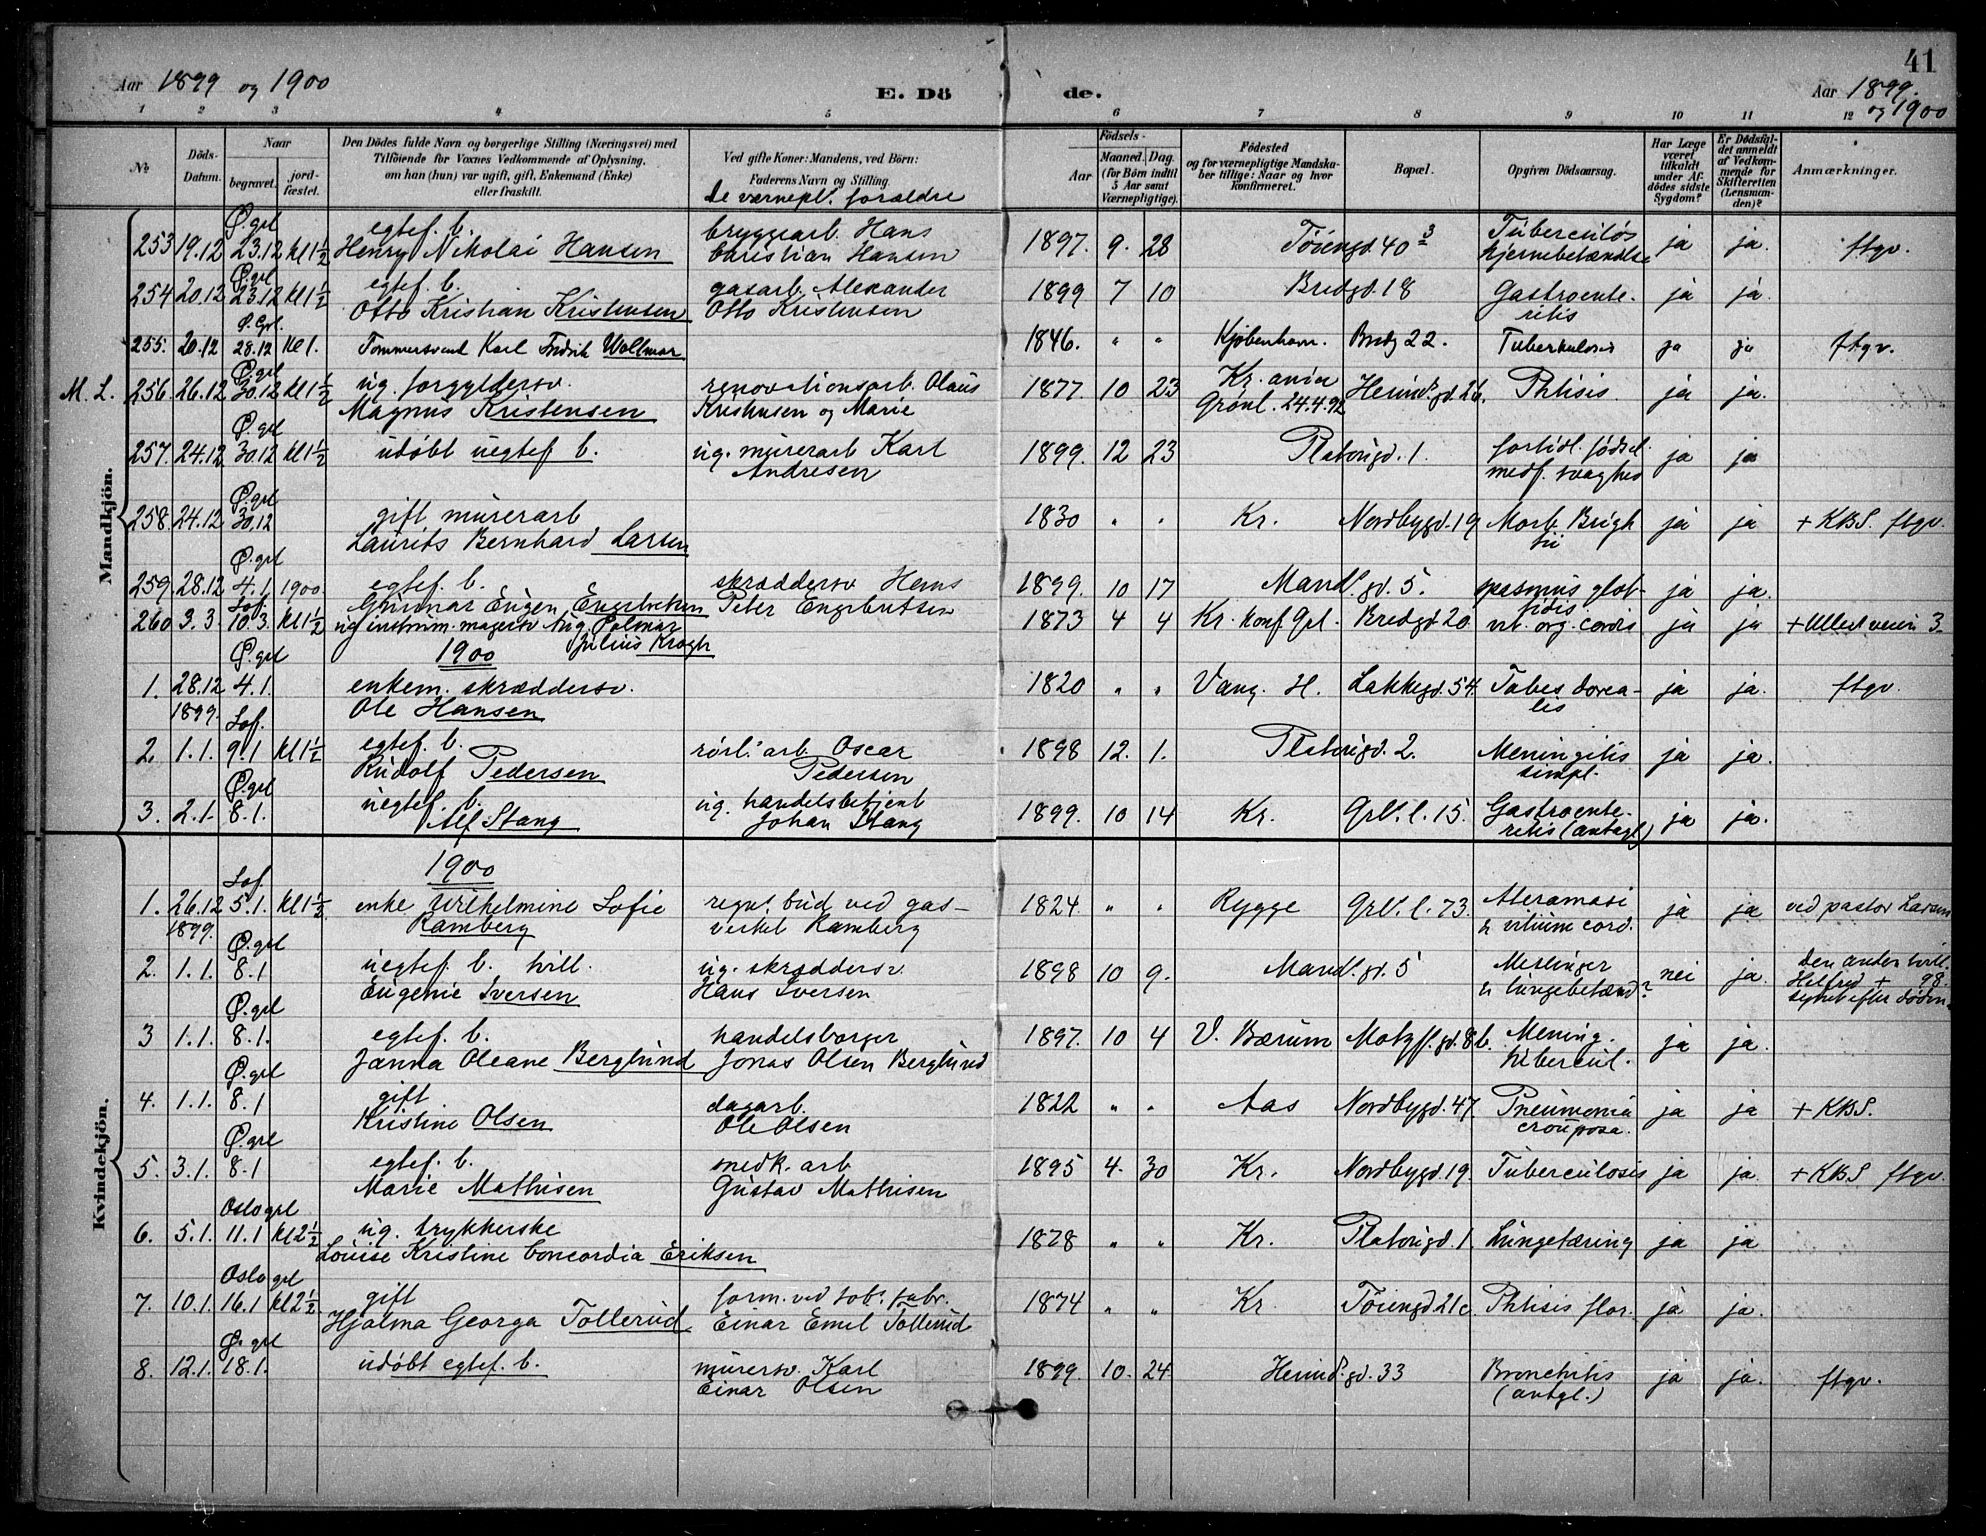 41
Aar 1899 og 1900
E. Dö
de.
Aar 1899.
og 1900
1 2 3 4 5 6 7 8 9 10 11 12
No
Döds-Datum.
Naar
begravet.
jordfæstet.
Den Dödes fulde Navn og borgerlige Stilling (Næringsvei) med
Tilföiende for Voxnes Vedkommende af Oplysning,
om han (hun) var ugift, gift, Enkemand (Enke)
eller fraskilt.
Ved gifte Koner: Mandens, ved Börn:
Faderens Navn og Stilling
De værnepl. forældre
Födsels-
Aar
Maaned. Dag.
(for Börn indtil
5 Aar samt
Værnepligtige).
Födested
og for værnepligtige Mandskaber tillige: Naar og hvor
konfirmeret.
Bopæl.
Opgiven Dödsaarsag.
Har Læge
været
tilkaldt
under Afdödes sidste
Sygdom?
Er Dödsfaldet anmeldt
af Vedkommende for
Skifteretten
(Lensmanden)?
Anmærkninger.
Mandkjön.
Ø.grl egtef. b. bryggearb. Hans Tuberculøs
253 19.12 23.12 kl 1½ Henry Nikolai Hansen Christian Hansen 1897. 9. 28 Töiengd. 40 3 hjernebetændelse ja ja. ftgv.
Ø.grl egtef. b. gasarb. Alexander
254 20.12 23.12 kl 1½ Otto Kristian Kristensen Otto Kristensen 1899 7 10 Bredgd. 18 Gastroenteritis ja ja.
Ø.Grl.
255. 20.12 28.12 kl 1. Tømmersvend Karl Fredrik Wollmar 1846. " " Kjøbenhavn. Bredg 22. Tuberkulosis ja ja ftgv.
Ø.grl ug. forgyldersv. renovationsarb. Olaus Kr. ania
M. L. 256. 26.12 30.12 kl 1½ Magnus Kristensen Kristensen og Marie 1877. 10 23 Grønl. 24.4.92 Heimd. gd. 26. Phtisis. ja ja.
Ø.grl
257. 24.12 30.12 kl 1½ udøbt uegtef b. ug. murerarb Karl Andresen 1899. 12 23 Platougd. 1. fortidl. fødsel medf. svaghed ja ja
Ø.grl
258. 24.12 30.12 gift murerarb Laurits Bernhard Larsen 1830 " " Kr. Nordbygd. 19 Morb. Brightii ja ja + KBS. ftgv.
Ø.grl
259. 28.12 4.1 1900. egtef. b. Gunnar Eugen Engebretsen skræddersv Hans Peter Engebretsen 1899. 10 17 Mandl. gd. 5. spasmus glottidis ja ja.
Sof.
260 3.3. 10.3. kl 1½ ug instrum. magersv Aug. Palmar Julius Krogh 1873 4 4 Kr. konf Grl. Bredgd 20 vit. org. cordis ja ja + Ullevl veien 3
1900
Ø.grl
1. 28.12 1899. 4.1. enkem. skræddersv. Ole Hansen 1820 " " Vang. H. Lakkegd. 54. Tabes dorsalis ja ja. ftgv.
Sof.
2. 1.1. 9.1 kl 1½ egtef. b. Rudolf Pedersen rørl. arb Oscar Pedersen 1898 12. 1. Platougd. 2. Meningitis simpl. ja ja.
Ø.grl
3. 2.1. 8.1. uegtef. b. Alf Stang ug. handelsbetjent Johan Stang 1899. 10 14 Kr. Grl. l. 15. Gastroenteritis (antagl) ja ja.
Kvindekjön.
1900
Sof.
1. 26.12 1899. 5.1. kl 1½ enke Wilhelmine Sofie Ramberg regnl. bud ved gasverket Ramberg 1824. " " Rygge Grl. l. 73. Ateramasi & vitium cord. ja ja ved pastor Larsen
Ø.grl
2. 1.1. 8.1 uegtef. b. tvill. Eugenie Iversen ug. skræddersv. Hans Iversen 1898 10 9. Mandl. gd. 5 Meslinger & lungebetænd? nei ja. Den anden tvill. Helfred + 98.
Ø.grl
3 1.1. 8.1. egtef. b. Janna Oleane Berglund handelsborger Jonas Olsen Berglund 1897. 10 4 V. Bærum Motzf. gd. 8b. Mening. tubercul. ja ja.
Ø.grl
4. 1.1. 8.1 gift Kristine Olsen dagarb. Ole Olsen 1822 " " Aas Nordbygd. 47. Pneumonia crouposa. ja ja + KBS.
Ø.grl
5. 3.1. 8.1 egtef. b. Marie Mathisen snedk. arb Gustav Mathisen 1895 4. 30 Kr. Nordbygd 19. Tuberculosis ja ja. + KBS ftgv.
Oslo grl
6. 5.1. 11.1 kl 2½ ug. trykkerske Louise Kristine Concordia Eriksen 1878 " " Kr. Platougd. 1. Lungetæring ja ja
Oslo grl
7. 10.1. 16.1 kl 2½ gift Hjalma Georga Tollerud form. ved tob. fabr. Einar Emil Tollerud 1874 " " Kr. Töiengd 21c. Phtisis flor. ja ja.
Ø.grl
8. 12.1. 18.1. udøbt egtef. b. murersv. Karl Einar Olsen 1899. 10. 24 Heimd. gd. 33 Bronchitis (antgl.) ja ja. ftgv.